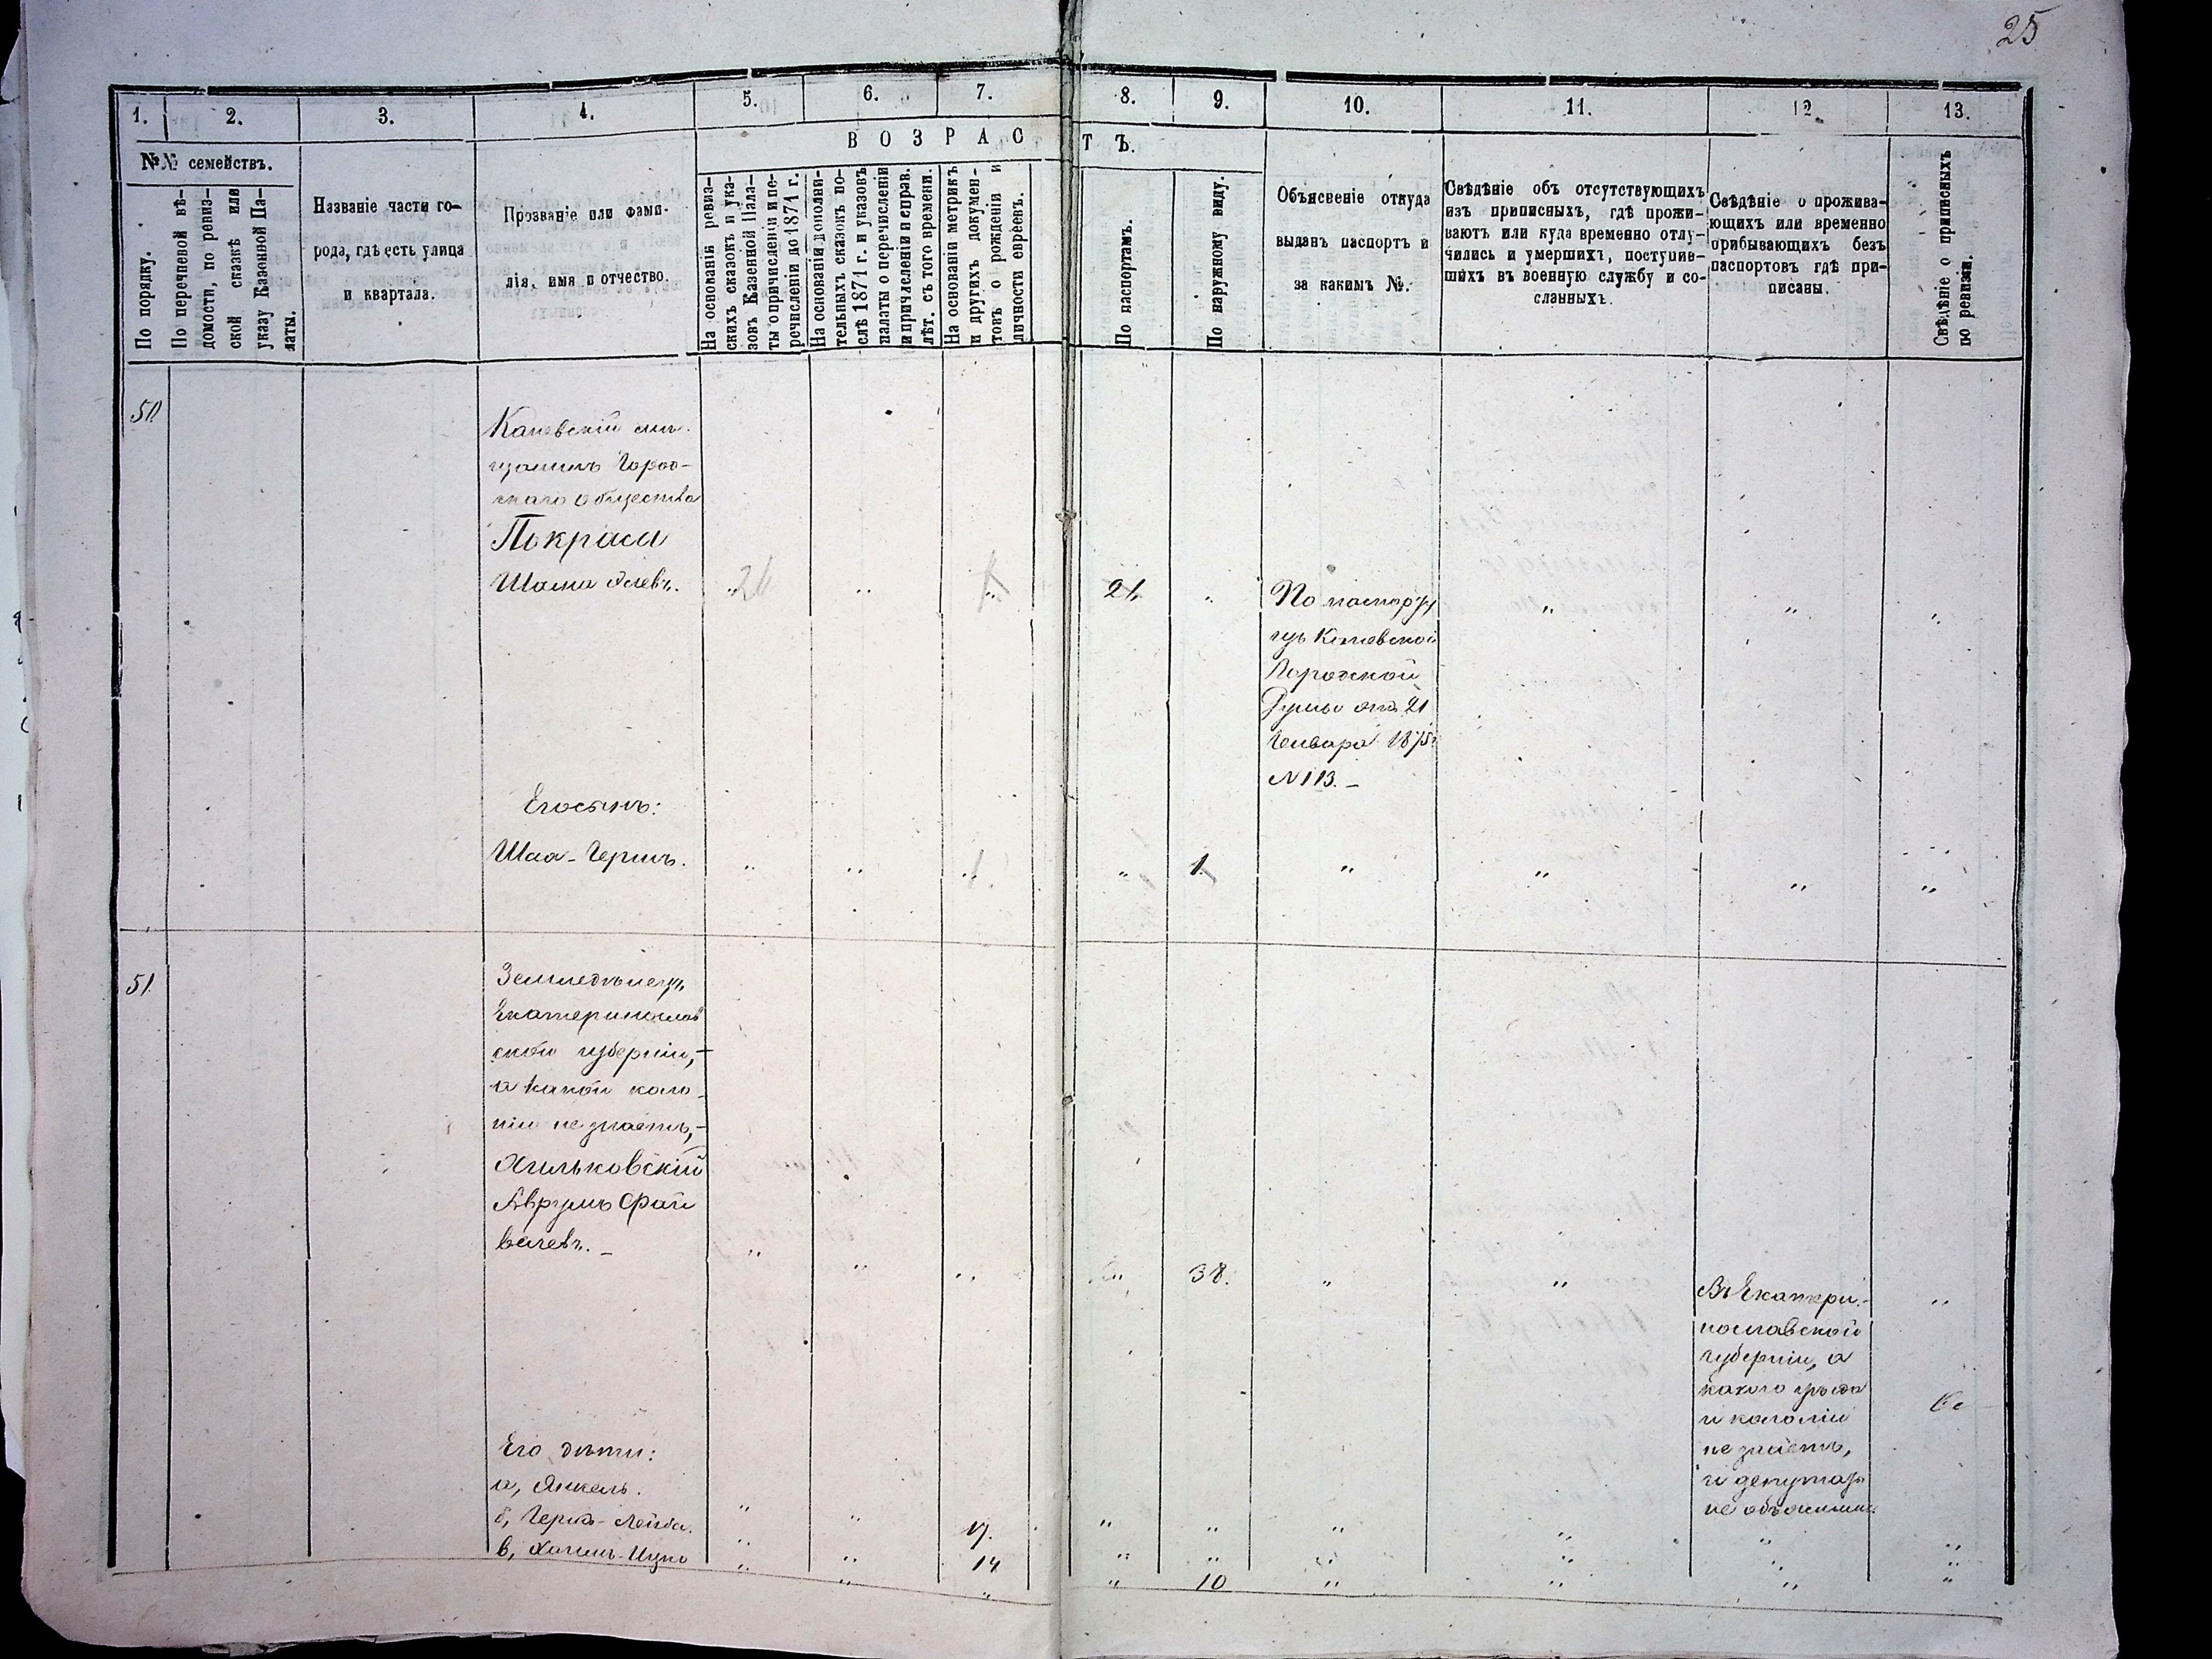 25
1. 2. 3. 4. 5. 6. 7. 8. 9. 10. 11. 12. 13.
№№ семействъ.
По порядку.
По перечневой вѣ-
домости, по ревиз-
ской сказкѣ или
указу Казенной Па-
латы.
Названіе части го-
рода, гдѣ есть улица
и квартала.
Прозваніе или фами-
лія, имя и отчество.
ВОЗРАСТЪ.
На основаніи ревиз-
скихъ сказокъ и ука-
зовъ Казенной Пала-
ты о причисленіи и пе-
речисленіи до 1871 г.
На основаніи дополни-
тельныхъ сказокъ по-
слѣ 1871 г. и указовъ
палаты о перечисленіи
и причисленіи и справ.
лѣт. съ того времени.
На основаніи метрикъ
и другихъ докумен-
товъ о рожденіи и
личности евреевъ.
По паспортамъ.
По наружному виду.
Объясненіе откуда
выданъ паспортъ и
за какимъ №.
Свѣдѣніе объ отсутствующихъ
изъ приписныхъ, гдѣ прожи-
ваютъ или куда временно отлу-
чились и умершихъ, поступив-
шихъ въ военную службу и со-
сланныхъ.
Свѣдѣніе о прожива-
ющихъ или временно
прибывающихъ безъ
паспортовъ гдѣ при-
писаны.
Свѣдѣніе о приписныхъ
по ревизіи.
50
Каневскій мѣ-
щанинъ Город-
скаго Общества
Покраса
Шома
21 21
По паспорту
изъ Каневской
Городской
Думы отъ 21
Генваря 1875 г.
№ 113. –
Его сынъ:
Шая-Гершъ. 1.
51
Земледѣлецъ
Екатеринослав
ской губерніи, –
а какой коло-
ніи не знаетъ, –
Хильковскій
Аврумъ Фай
велевъ. – 38.
Въ Екатери-
нославской
губерніи, а
какого уѣзда
и колоніи
не знаетъ,
и депутаты
не объяснили.
Его дѣти:
а, Янкель. 17.
б, Гершъ-Лейба. 14
в, Хаимъ-Ицко 10